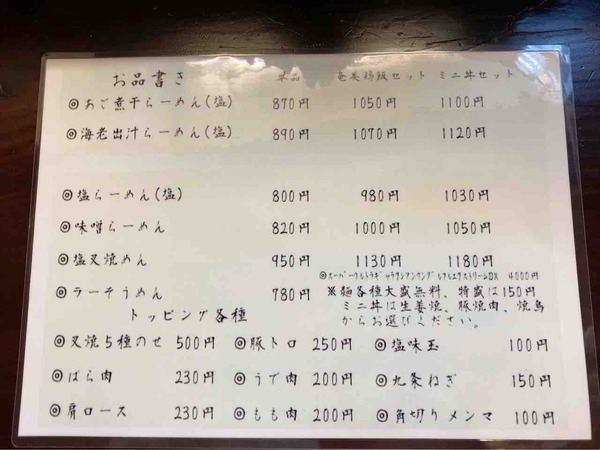 お品書き 単品 奄美鶏飯セット ミニ丼セット
◎あご煮干らーめん(塩) 870円 1050円 1100円
◎海老出汁らーめん(塩) 890円 1070円 1120円
◎塩らーめん(塩) 800円 980円 1030円
◎味噌らーめん 820円 1000円 1050円
◎塩叉焼めん 950円 1130円 1180円
DX 4000円
◎ラーそうめん 780円 ※麺各種大盛無料、特盛は150円
ミニ丼は生姜焼、豚焼肉、焼鳥
からお選びください。
トッピング各種
◎叉焼5種のせ 500円 ◎豚トロ 250円 ◎塩味玉 100円
◎ばら肉 230円 ◎うで肉 200円 ◎九条ねぎ 150円
◎肩ロース 230円 ◎もも肉 200円 ◎角切りメンマ 100円